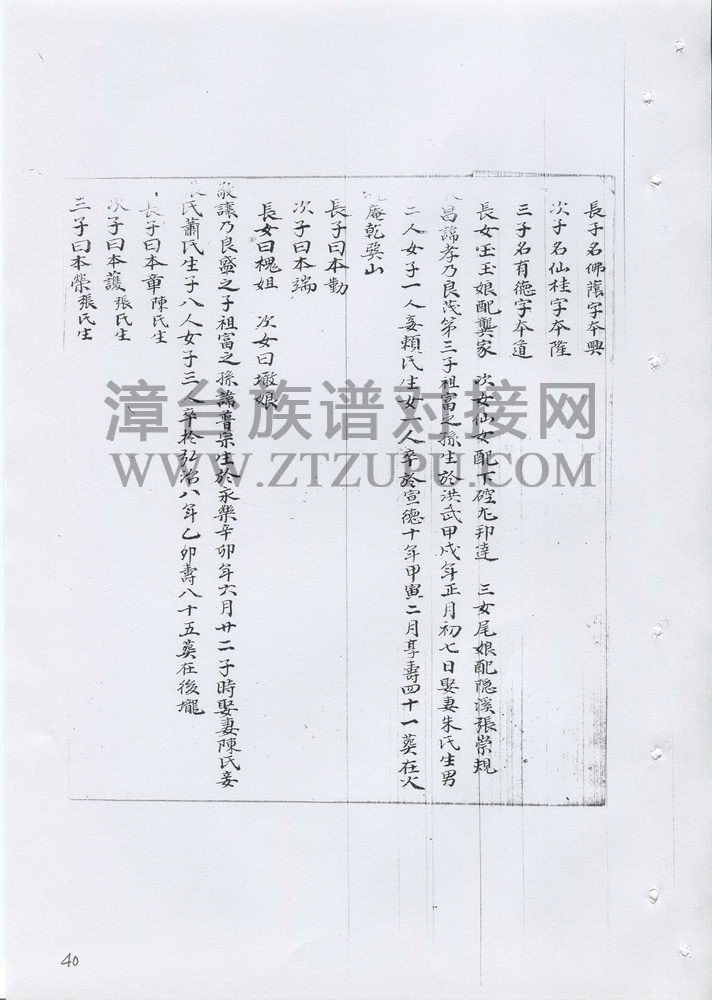 長子名佛蔭字本興
次子名仙桂字本隆
三子名有德字本道
長女玉玉娘配龔家 次女仙女配下砼尢邦達 三女尾娘配隐溪張崇規
昌諡孝乃良茂第三子祖富之孫生於洪武甲戌年正月初七日娶妻朱氏生男
二人女子一人妾賴氏生女一人卒於宣德十年甲寅二月享壽四十一葬在火
庵乾獎山
長子曰本勤
次子曰本端
長女曰槐姐 次女曰墩娘
敬讓乃良盛之子祖富之孫諡普宗生於永樂辛卯年六月廿二子時娶妻陳氏妾
氏蕭氏生子八人女子三人卒於弘治八年乙卯壽八十五葬在後壠
長子曰本章陳氏生
次子曰本護張氏生
三子曰本榮張氏生
漳台族谱对接网
WWW.ZTZUPU.COM
40